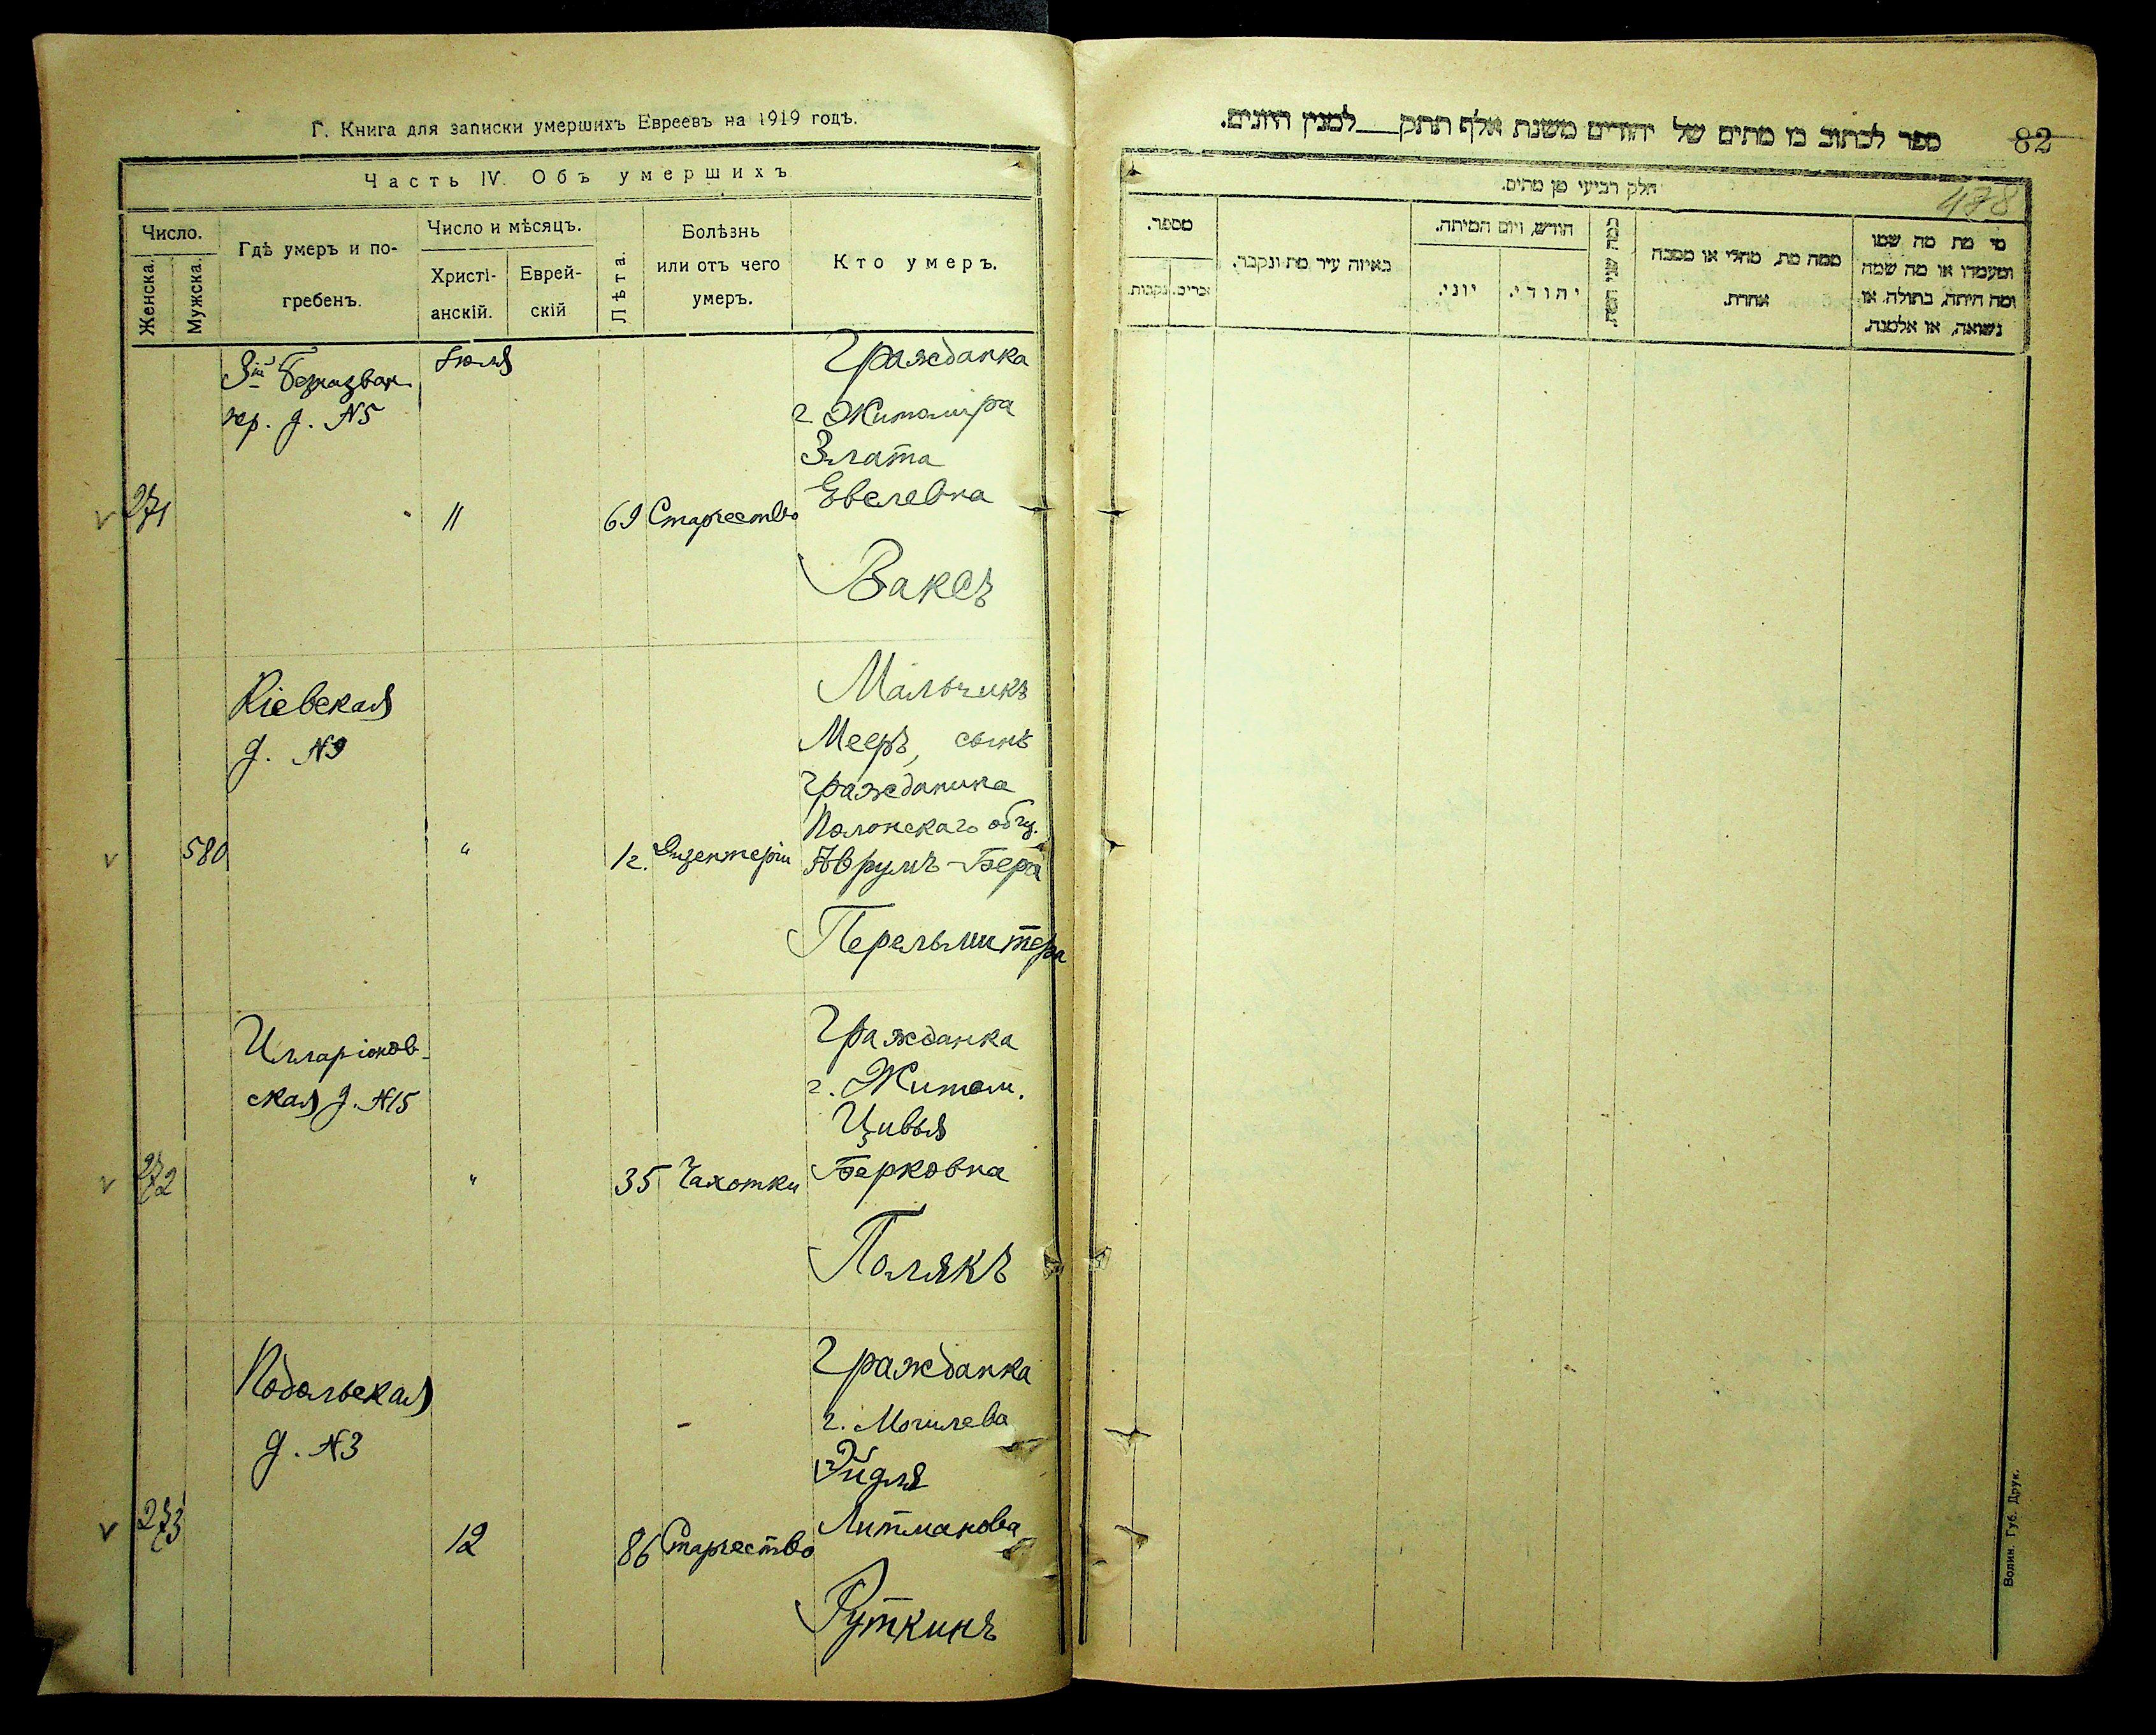 Г. Книга для записки умершихъ Евреевъ на 1919 годъ.
Часть IV. Объ умершихъ
Число.
Женска.
Мужска.
Гдѣ умеръ и по-
гребенъ.
Число и мѣсяцъ.
Христі-
анскій.
Еврей-
скій
Лѣта.
Болѣзнь
или отъ чего
умеръ.
Кто умеръ.
3й Безназван.
пер. д. №5
Іюля
Гражданка
г. Житоміра
Злата
Евелевна
271
11
69
Старчество
Ваксъ
Кіевская
д. №9
Мальчикъ
Мееръ, сынъ
гражданина
Полонскаго общ.
580
"
1г.
Дизентерія
Аврумъ-Бера
Перельмитера
Илларіонов-
ская д. №15
Гражданка
г. Житом.
Цивья
272
"
35
Чахотки
Берковна
Полякъ
Подольская
д. №3
Гражданка
г. Могилева
Эйдля
Литманова
273
12
86
Старчество
Руткинъ
ספר לכתוב בו מתים של יהודים משנת אלף תתק__למנין היונים.
82
חלק רביעי מן מתים.
478
מספר.
זכרים.
נקבות.
באיזה עיר מת ונקבר.
חודש, ויום המיתה.
יוני.
יהודי.
כמה שני המת.
ממה מת, מחלי או מסבה
אחרת.
מי מת מה שמו
ומעמדו או מה שמה
ומה היתה, בתולה, או
נשואה, או אלמנה.
Волин. Губ. Друк.